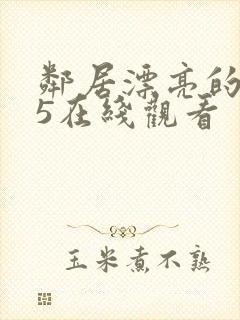 鄰居漂亮的
5在綫觀看
玉米煮不熟